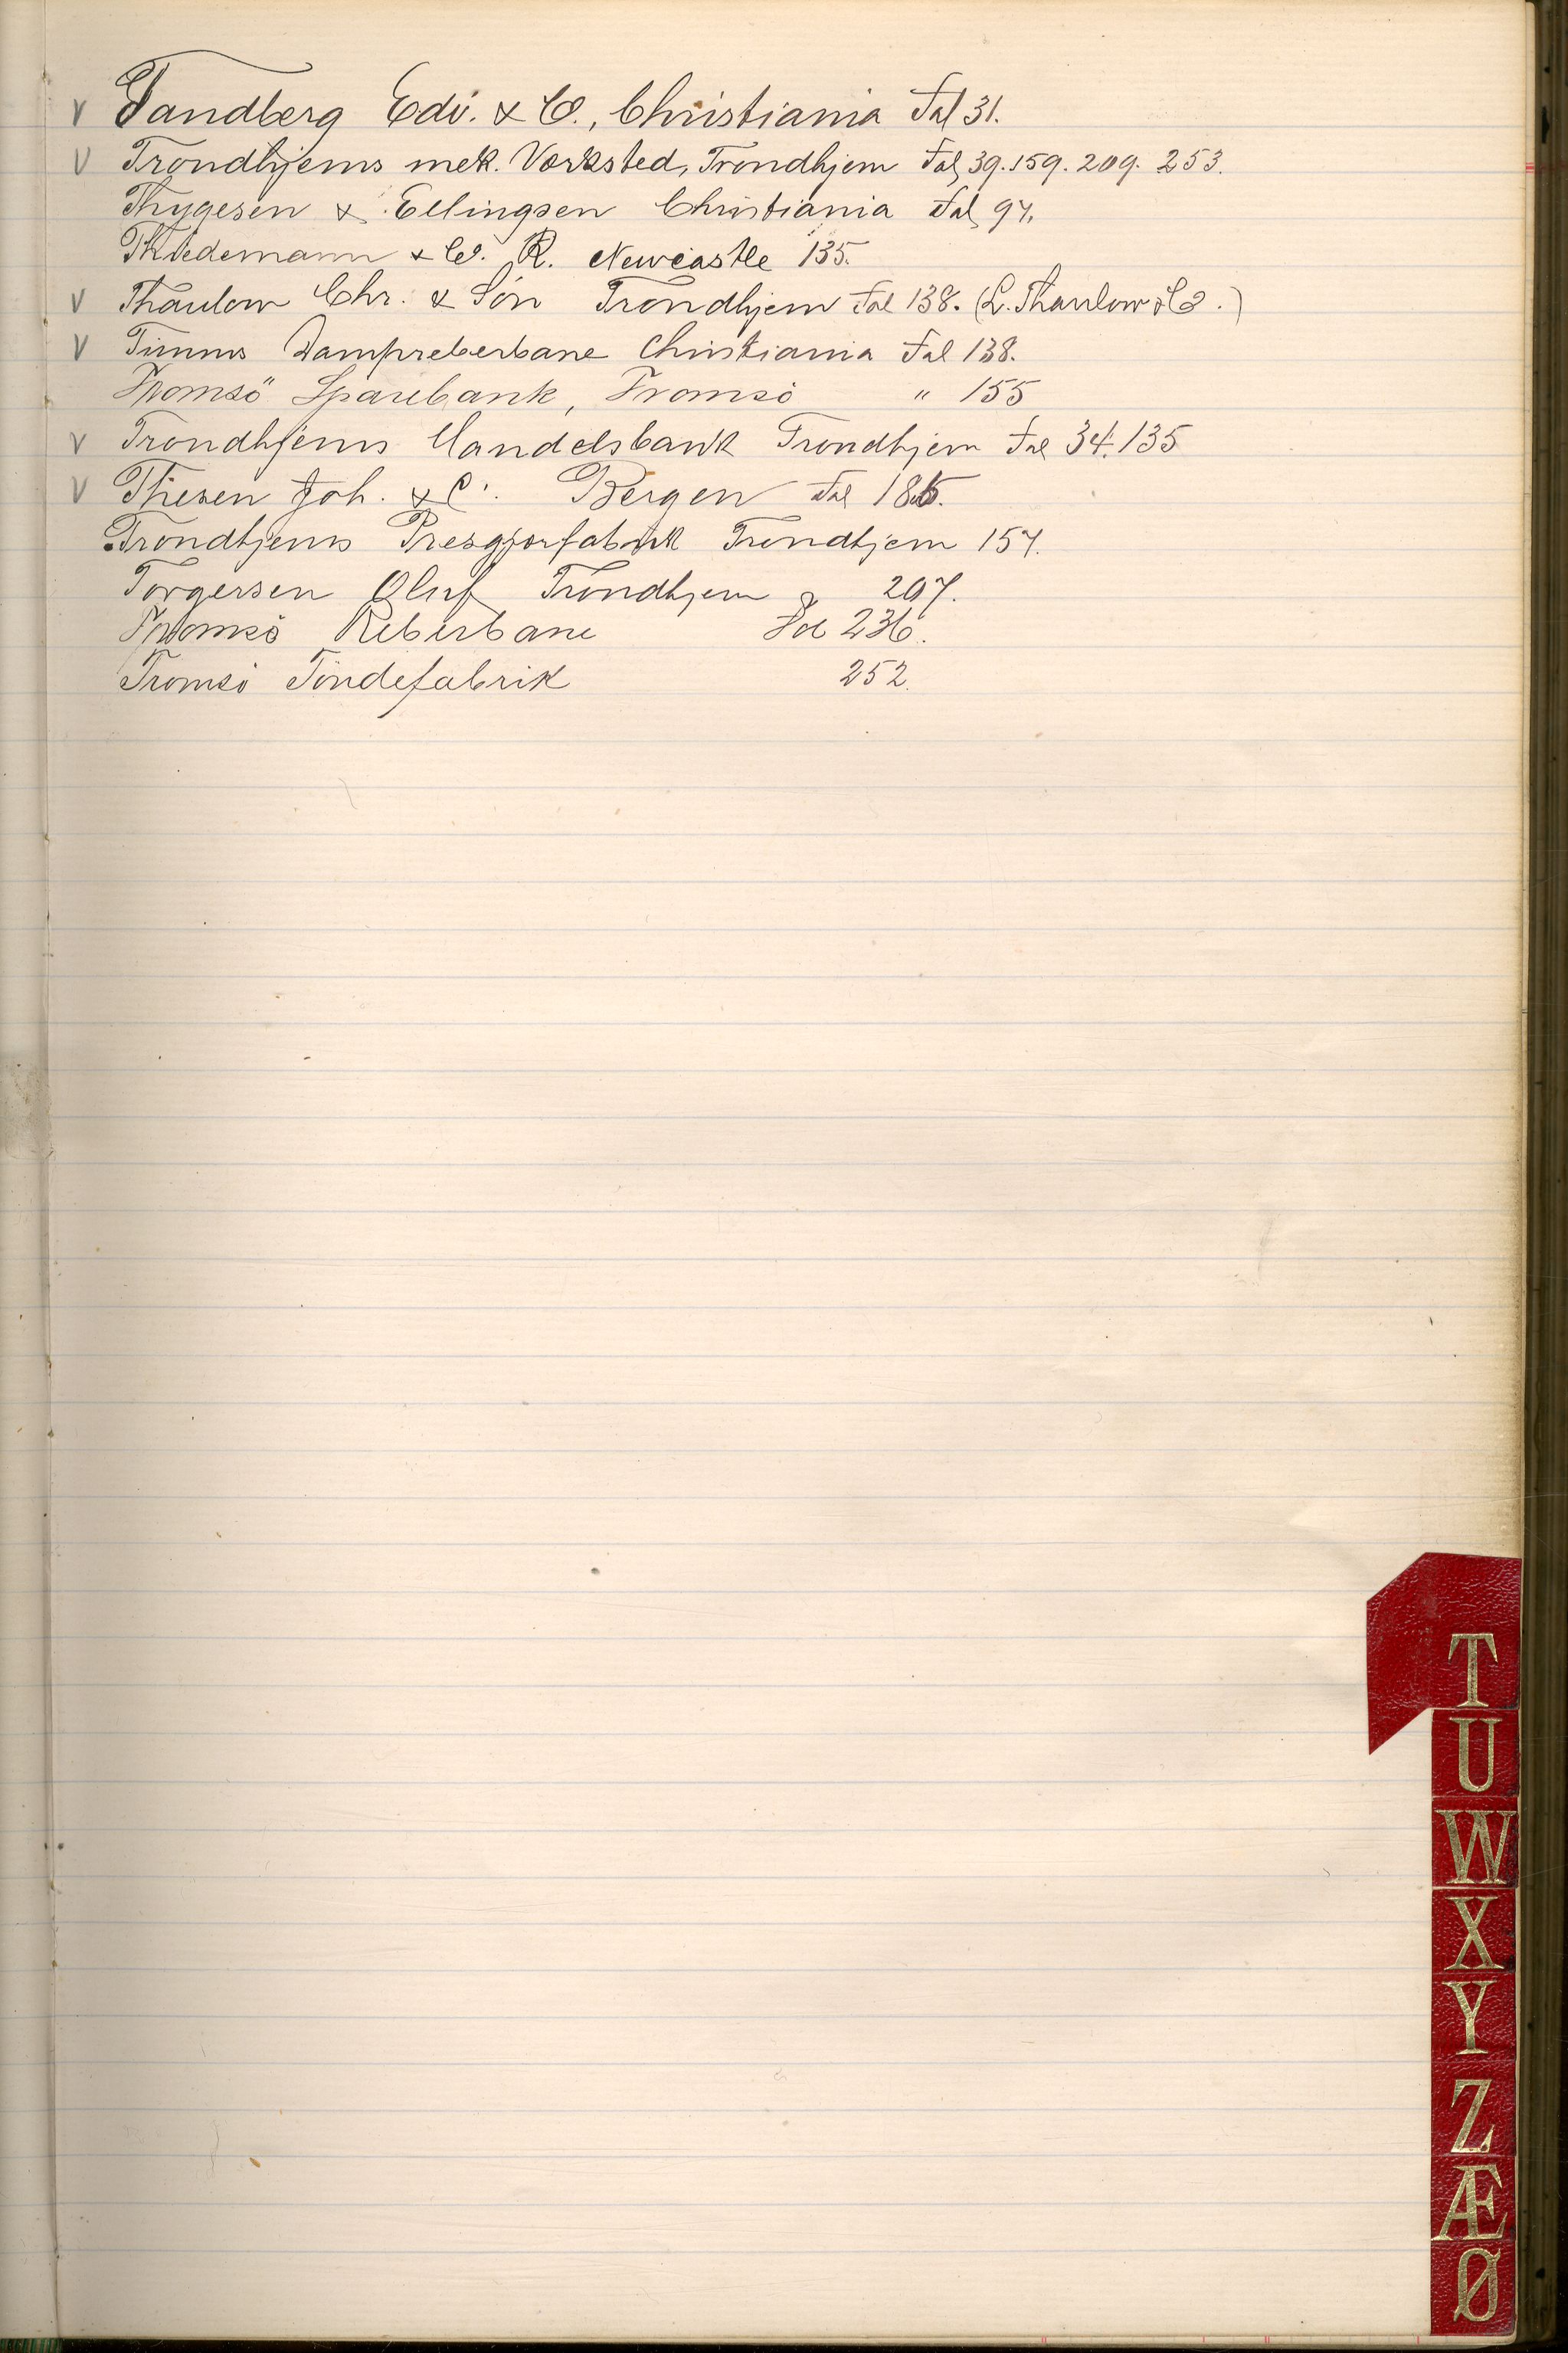 V Tandberg Edv. & Co., Christiania Fol 31.
V Trondhjems mek. Værksted, Trondhjem Fol 39. 159. 209. 253.
Thygesen & Ellingsen Christiania Fol 97.
Thiedemann & Co. R. Newcastle 135.
V Thaulow Chr. & Sön Trondhjem Fol 138. (L. Thaulow & Co.)
V Timms Dampreberbane Christiania Fol 138.
Tromsö Sparebank, Tromsö " 155
V Trondhjems Handelsbank Trondhjem Fol 34. 135
V Thesen Joh. & C. Bergen Fol
Trondhjems Presgjærfabrik Trondhjem 157.
Torgersen Oluf Trondhjem 207.
Tromsö Reberbane Fol 236.
Tromsö Töndefabrik 252.
T
U
W
X
Y
Z
Æ
Ø